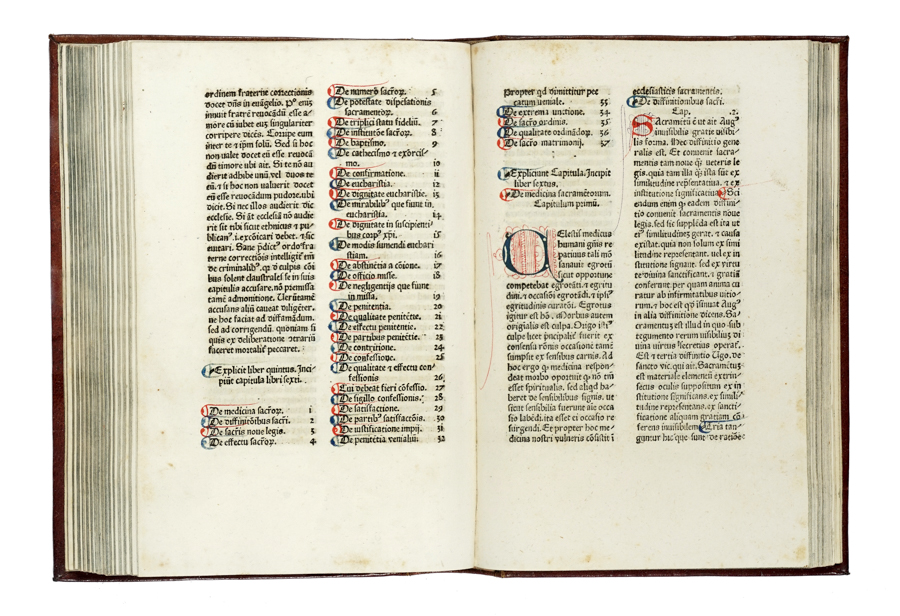 ordinem fraterne correctionis
docet dñs in euãgelio. Pº eniʒ
inuuit fratrẽ reuocãdũ esse a
more cũ iubet euʒ singulariter
corripere dicẽs. Corripe eum
inter te ⁊ ipm̃ solũ. Sed si hoc
non ualet docet eũ esse reuocã
dũ timore ubi ait. Si te nõ au
dierit adhibe unũ uel duos te
cũ. ⁊ si hoc non ualuerit docet
eũ esse reuocãdum pudore. ubi
dicit. Si nec illos audierit dic
ecclesie. Si ãt ecclesiã nõ audie
rit sit tibi sicut ethnicus ⁊ pu-
blicanꝰ. i. excõicari debet. ⁊ sic
euitari. Sane p̃dictꝰ ordo fra
terne correctiõis intelligit̃
de criminalibꝰ. qꝛ ꝓ culpis
bus solent claustrales se in suis
capitulis accusare. nõ premissa
tamẽ admonitione. Uerũtamẽ
accusans aliũ caueat diligẽter.
ne hoc faciat ad diffamãdum.
sed ad corrigendũ. quoniam si
quis ex deliberatione cõtrariũ
faceret mortalit̃ peccaret.
Explicit liber quintus. Inci
piũt capitula libri sexti.
De medicina sacr̃oꝝ. 1
De diffinitõibus sacr̃i. 2
De sacr̃is noue legis. 3
De effectu sacr̃oꝝ. 4
De numero sacr̃oꝝ. 5
De potestate dispẽsationis
sacramentoꝝ. 6
De triplici statu fideliũ. 7
De institutõe sacr̃oꝝ. 8
De baptismo. 9
De cathecismo ⁊ exorcis-
mo. 10
De confirmatione. 11
De eucharistia. 12
De dignitate eucharistie. 13
De mirabilibꝰ que sunt in
eucharistia. 14
De dignitate in suscipienti
bus corpꝰ xp̃i. 15
De modis sumendi euchari
stiam. 16
De abstinẽtia a cõione. 17
De officio misse. 18
De negligentijs que fiunt
in missa. 19
De penitentia. 20
De qualitate penitẽtie. 21
De effectu penitentie. 22
De partibus penitẽtie. 23
De contritione. 24
De confessione. 25
De qualitate ⁊ effectu con-
fessionis 26
Cui debeat fieri cõfessio. 27
De sigillo confessionis. 28
De satisfactione. 29
De partibꝰ satisfactõis. 30
De iustificatione impij. 31
De penitẽtia uenialiũ. 32
propter qd̃ dimittitur pec
catum ueniale. 33
De extrema unctione. 34
De sacr̃o ordinis. 35
De qualitate ordinãdoꝝ. 36
De sacr̃o matrimonij. 37
Expliciunt Capitula. Incipit
liber sextus.
De medicina sacramentorum.
Capitulum primũ.
CElestis medicus
humani gñis re
parator tali mõ
sanauit egrotũ
sicut oportune
competebat egrotãti. ⁊ egritu
dini. ⁊ occasiõi egrotãdi. ⁊ ipsi
egritudinis curatõi. Egrotus
igitur est hõ. Morbus autem
originalis est culpa. Origo
culpe licet p̃ncipalit̃ fuerit ex
consensu rõnis occasionẽ tamẽ
sumpsit ex sensibus carnis. Ad
hoc ergo ꝙ medicina respon-
deat morbo oportuit ꝙ nõ
esset spiritualis. sed aliqd̃ ha-
beret de sensibilibus signis. ut
sicut sensibilia fuerunt aĩe occa
sio labẽdi. ita esset ei occasio re
surgendi. Et propter hoc me-
dicina nostri uulneris cõsistit ĩ
ecclesiasticis sacramentis.
De diffinitionibus sacr̃i.
Cap. .2.
SAcramẽtũ ut ait Augꝰ
inuisibilis gratie uisibi-
lis forma. Hec diffinitio gene
ralis est. Et conuenit sacra-
mentis tam noue qʒ ueteris le
gis. quia tam illa qʒ ista sũt ex
similitudine rep̃sentatiua. ⁊ ex
institutione significatiua. Sci
endum enim ꝙ eadem diffini-
tio conuenit sacramentis noue
legis. sed sic suppleda est ita ut
eiꝰ similitudinẽ gerat. ⁊ causa
existat. quia non solum ex simi
litudine representant. uel ex in
stitutione signant. sed ex uirtu
te diuina sanctificant. ⁊ gratiã
conferunt per quam anima cu
ratur ab infirmitatibus uitio-
rum. ⁊ hoc est qd̃ innuit Augꝰ
in alia diffinitione dicens. Sa
cramentuʒ est illud in quo sub
tegumento rerum uisibiliuʒ di
uina uirtus secretius operat̃.
Est ⁊ tertia diffinitio Ugo. de
sancto uic. qui ait. Sacramẽtuʒ
est materiale elementũ extrin-
secus oculis suppositum ex in
stitutione significans. ex simili-
tudine representans. ex sancti-
ficatione aliquam gratiam cõ-
ferens inuisibilem. Tria tan-
guntur hic que sunt de ratiõe